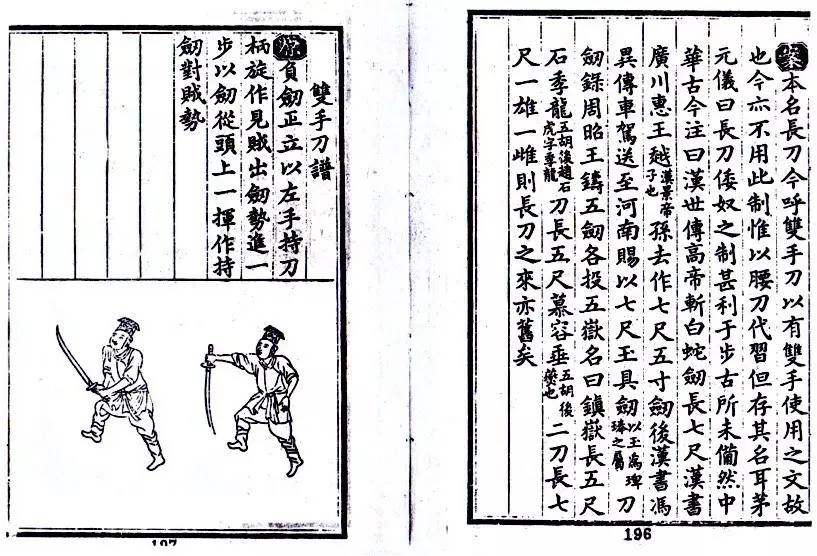 案本名長刀今呼雙手刀以有雙手使用之文故
也今亦不用此制惟以腰刀代習但存其名耳茅
元儀曰長刀倭奴之制甚利于步古所未備然中
華古今注曰漢世傳高帝斬白蛇劒長七尺漢書
廣川惠王越漢景帝子也孫去作七尺五寸劒後漢書馮
異傳車駕送至河南賜以七尺玉具劒以玉為琕琫之屬刀
劒錄周昭王鑄五劒各投五嶽名曰鎮嶽長五尺
石季龍五胡後趙石虎字季龍刀長五尺慕容垂五胡後燕也二刀長七
尺一雄一雌則長刀之來亦舊矣
196
雙手刀譜
原負劒正立以左手持刀
柄旋作見賊出劒勢進一
步以劒從頭上一揮作持
劒對賊勢